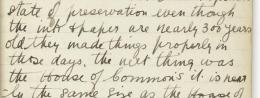 state of preservation even though
the ink & paper are nearly 300 years
old they made things properly in
those days, the next thing was
the House of Commons it is near
-ly the same size as the House of